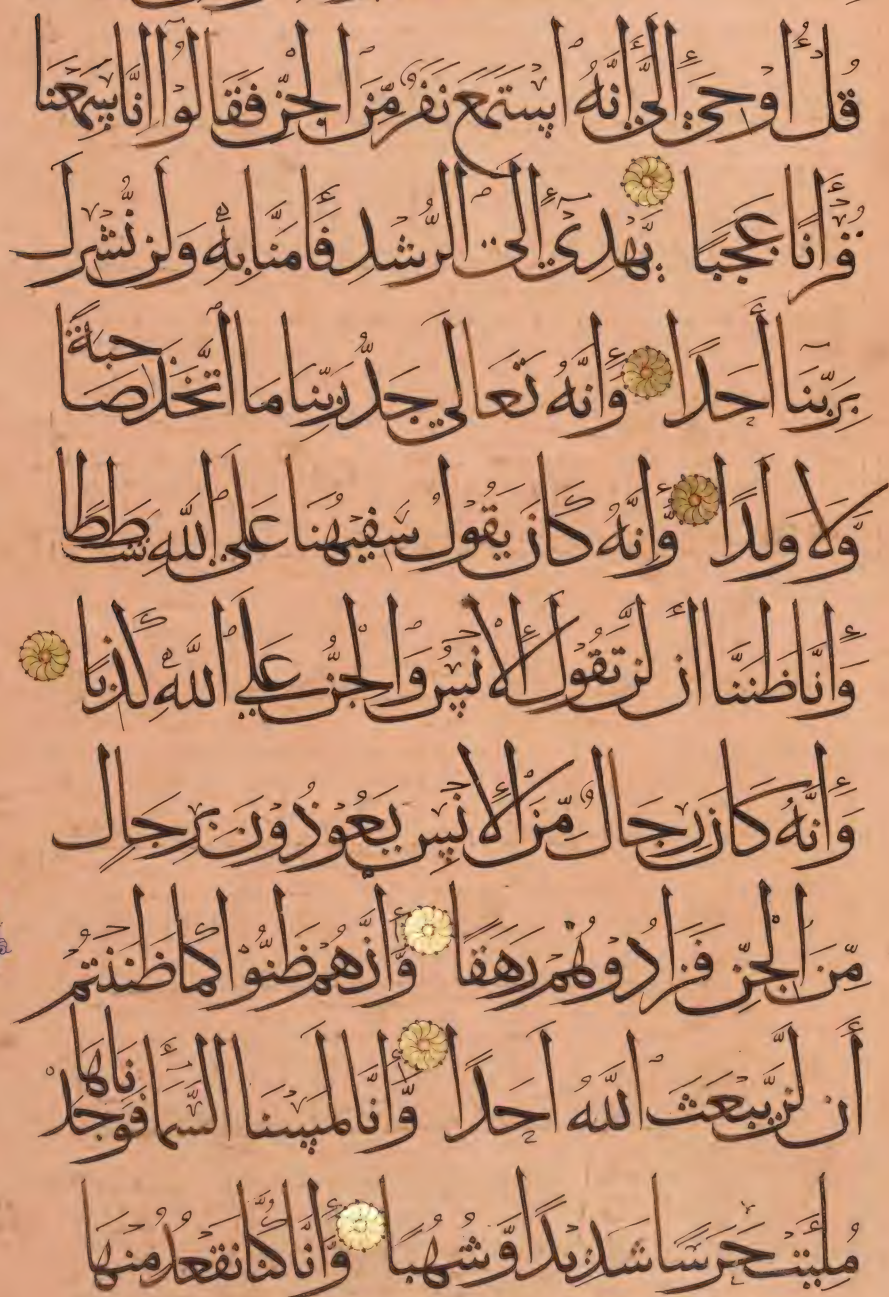 قُلْ أُوحِيَ إِلَيَّ أَنَّهُ اسْتَمَعَ نَفَرٌ مِّنَ الْجِنِّ فَقَالُوا إِنَّا سَمِعْنَا
قُرْأَنًا عَجَبًا يَهْدِي إِلَى الرُّشْدِ فَآمَنَّا بِهِ وَلَن نُّشْرِكَ
بِرَبِّنَا أَحَدًا وَأَنَّهُ تَعَالَى جَدُّ رَبِّنَا مَا اتَّخَذَ صَاحِبَةً
وَّلَا وَلَدًا وَّأَنَّهُ كَانَ يَقُولُ سَفِيهُنَا عَلَى اللَّهِ شَطَطًا
وَأَنَّا ظَنَنَّا أَن لَّن تَقُولَ الْإِنسُ وَالْجِنُّ عَلَى اللَّهِ كَذِبًا
وَأَنَّهُ كَانَ رِجَالٌ مِّنَ الْإِنسِ يَعُوذُونَ بِرِجَالٍ
مِّنَ الْجِنِّ فَزَادُوهُمْ رَهَقًا وَّأَنَّهُمْ ظَنُّوا كَمَا ظَنَنتُمْ
أَن لَّن يَّبْعَثَ اللَّهُ أَحَدًا وَّأَنَّا لَمَسْنَا السَّمَاءَ فَوَجَدْنَاهَا
مُلِئَتْ حَرَسًا شَدِيدًا وَّشُهُبًا وَّأَنَّا كُنَّا نَقْعُدُ مِنْهَا